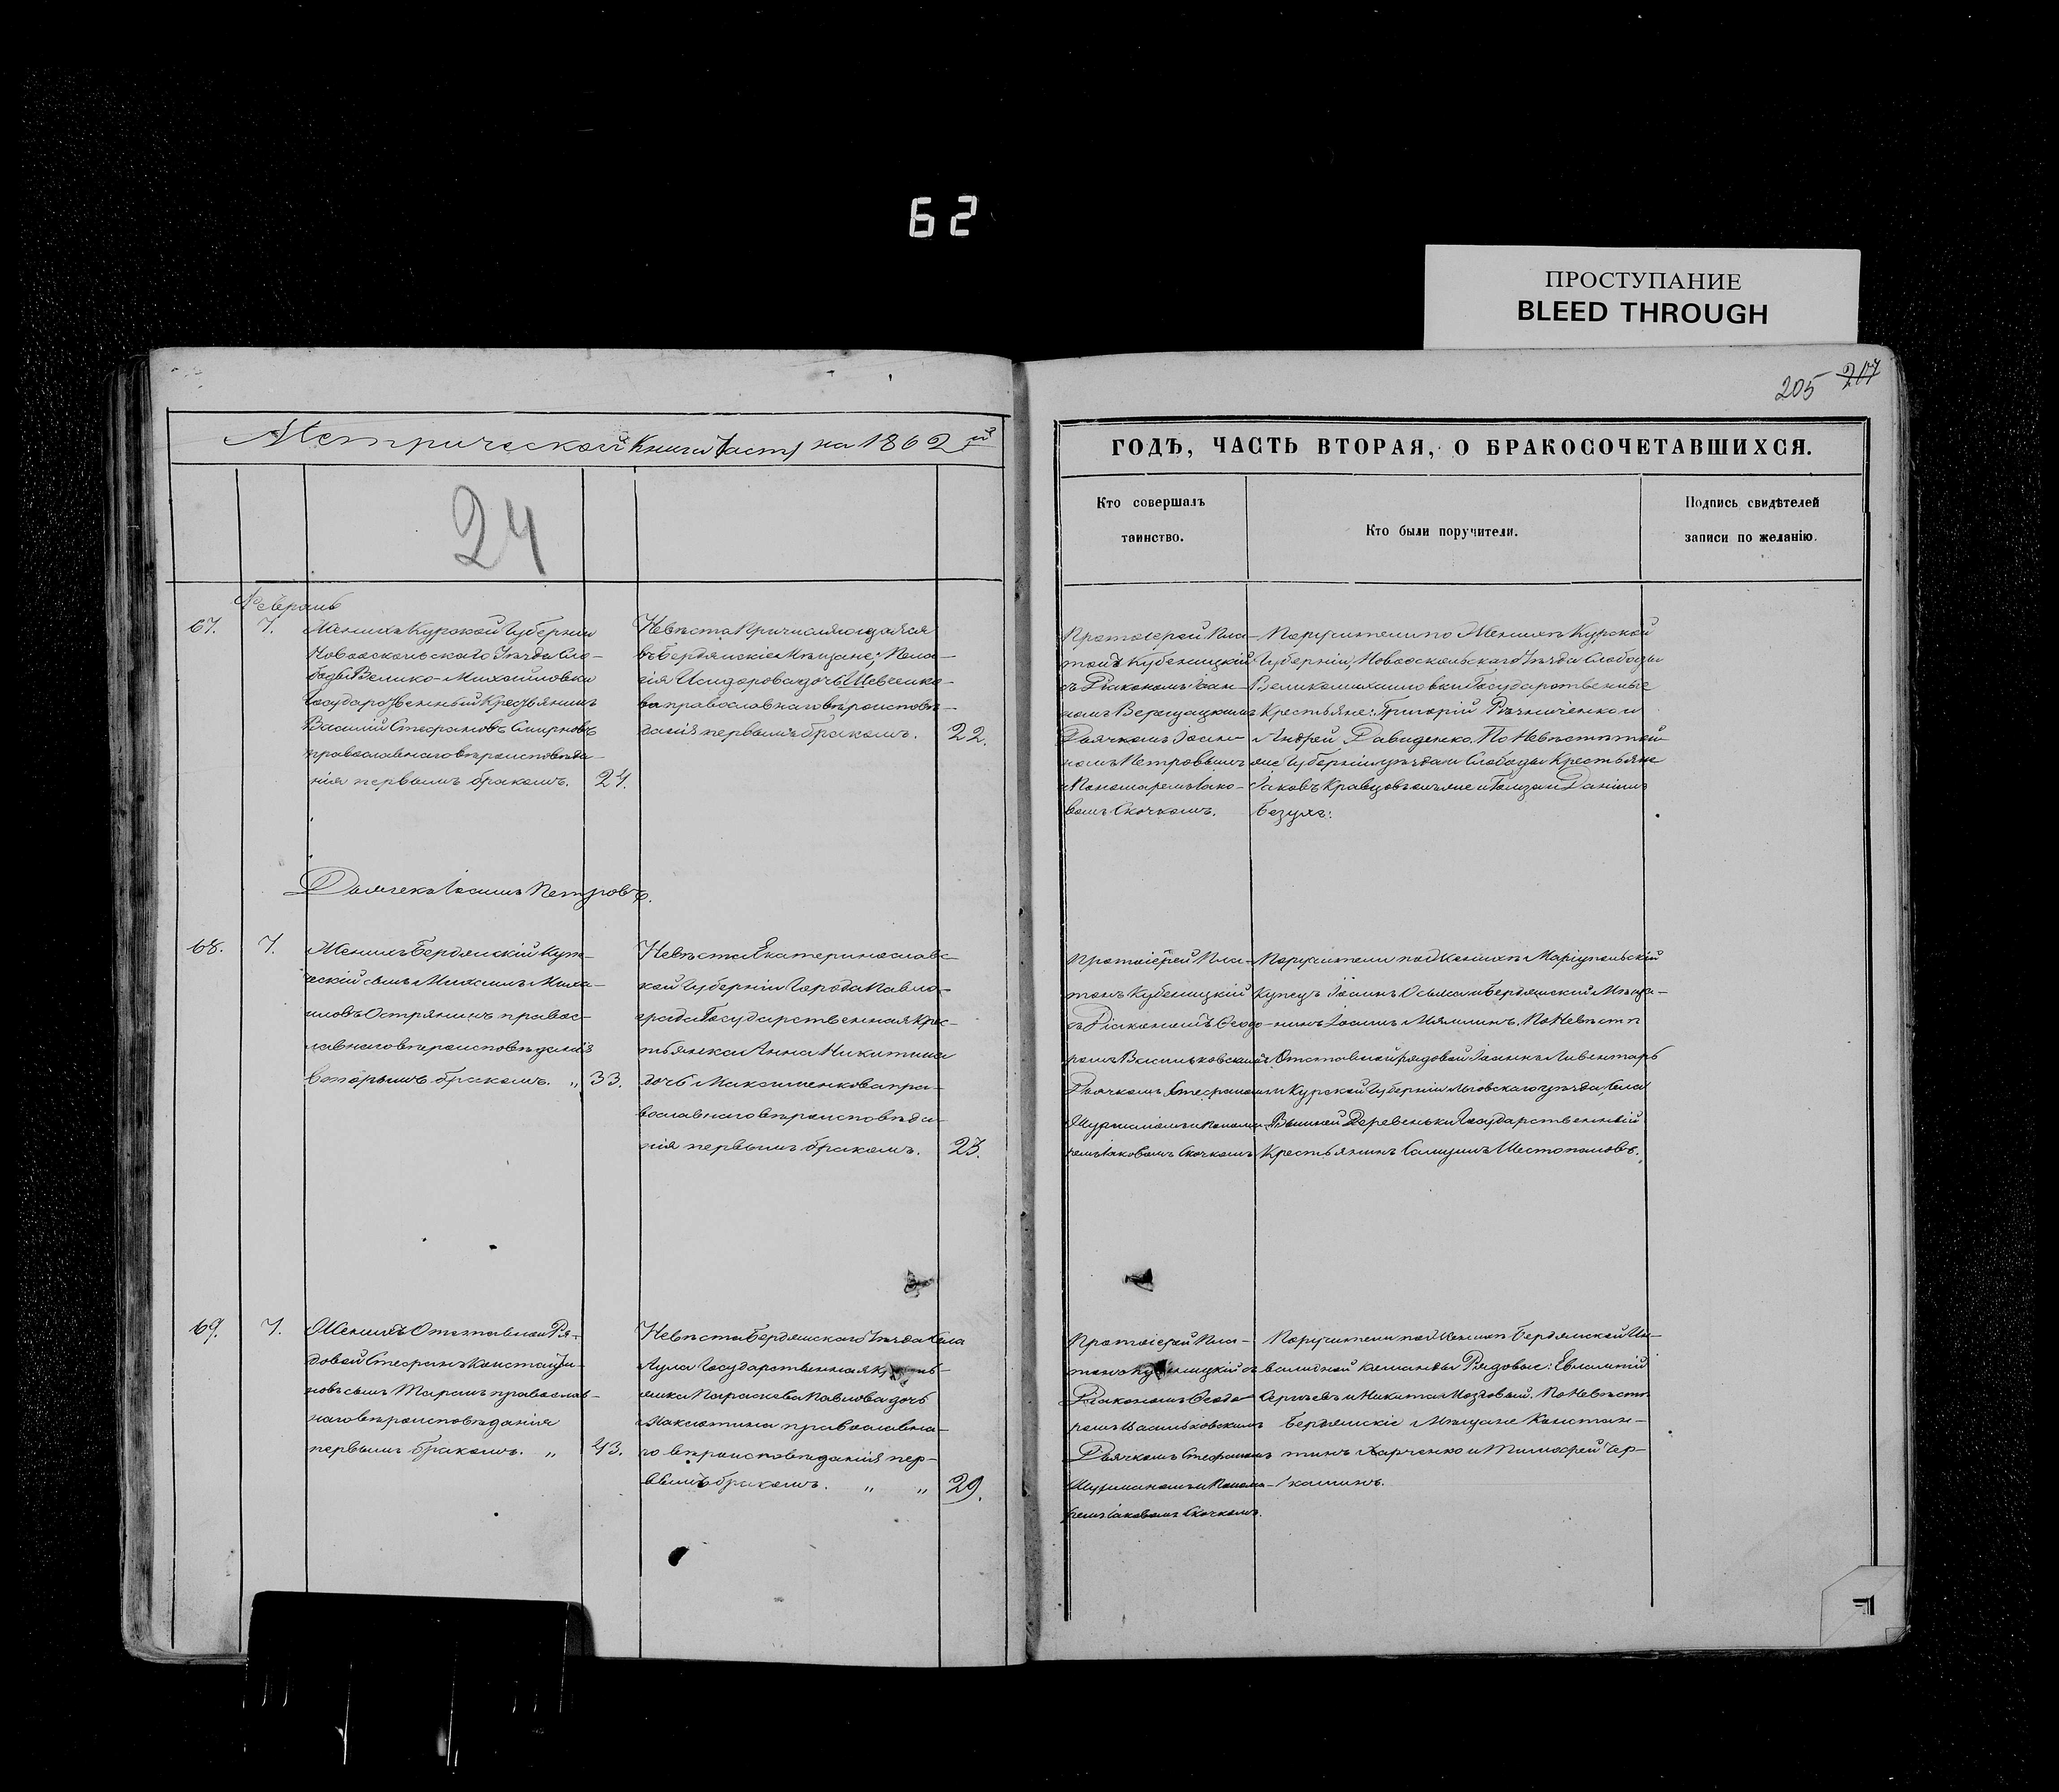 62
ПРОСТУПАНИЕ
BLEED THROUGH
205 217
Метрической Книги Часть на 1862й
ГОДЪ, ЧАСТЬ ВТОРАЯ, О БРАКОСОЧЕТАВШИХСЯ.
24
Кто совершалъ
таинство.
Кто были поручители.
Подпись свидѣтелей
записи по желанію.
Февраль
67. 7.
Женихъ Курской Губерніи
Новооскольскаго Уѣзда Сло-
боды Велико-Михайловки
Государственный Крестьянинъ
Василій Стефановъ Смирновъ
православнаго вѣроисповѣда-
нія первымъ бракомъ. 24.
Невѣста Причисляющаяся
въ Бердянскіе Мѣщане, Пела-
гія Исидорова дочь Шевченко-
ва православнаго вѣроисповѣ-
данія первымъ бракомъ. 22.
Протоіерей Пла-
тонъ Кубеницкій
съ Діакономъ Іоан-
номъ Верещацкимъ
Дьячкомъ Іоан-
номъ Петровымъ
и Пономаремъ Іако-
вомъ Скочкомъ.
Поручители по Женихѣ Курской
Губерніи, Новооскольскаго Уѣзда Слободы
Великомихайловки Государственные
Крестьяне: Григорій Рѣзниченко и
Андрей Давиденко. По Невѣстѣ той-
же Губерніи уѣзда и Слободы Крестьяне
Іаковъ Кравцовъ Даніилъ
Безугло:
Дьячекъ Іоаннъ Петровъ.
68. 7.
Женихъ Бердянскій Купе-
ческій сынъ Михаилъ Миха-
иловъ Острянинъ правос-
лавнаго вѣроисповѣданія
вторымъ бракомъ. „ 33.
Невѣста Екатеринославс-
кой Губерніи Города Павло-
града Государственная Крес-
тьянка Анна Никитина
дочь Максименкова пра-
вославнаго вѣроисповѣда-
нія первымъ бракомъ. 23.
Протоіерей Пла-
тонъ Кубеницкій
съ Діакономъ Ѳеодо-
ромъ Васильковскимъ
Дьячкомъ Стефаномъ
и Понома-
ремъ Іаковомъ Скочкомъ
Поручители по Женихѣ Маріупольскій
Купецъ Іоаннъ и Бердянскій Мѣща-
нинъ Іоаннъ По Невѣстѣ
Отставной рядовой Іоаннъ Ливентарь
и Курской Губерніи Льговскаго уѣзда, Села
Деревеньки Государственный
Крестьянинъ Самуилъ Шестопаловъ.
69. 7.
Женихъ Отставной Ря-
довой Стефанъ Константи-
новъ сынъ Таранъ православ-
наго вѣроисповѣданія
первымъ бракомъ. „ 43.
Невѣста Бердянскаго Уѣзда Села
Аула Государственная Кресть-
янка Параскева Павлова дочь
Максютина православна-
го вѣроисповѣданія пер-
вымъ бракомъ. „ „ 29.
Протоіерей Пла-
тонъ Кубеницкій съ
Діакономъ Ѳеодо-
ромъ Васильковскимъ
Дьячкомъ Стефаномъ
и Понома-
ремъ Іаковомъ Скочкомъ.
Поручители по Женихѣ Бердянской Ин-
валидной команды Рядовые: Евлампій
Сергѣевъ и Никита Мозговый. По Невѣстѣ
Бердянскіе Мѣщане Констан-
тинъ Харченко и Тимофей Чер-
кашинъ.